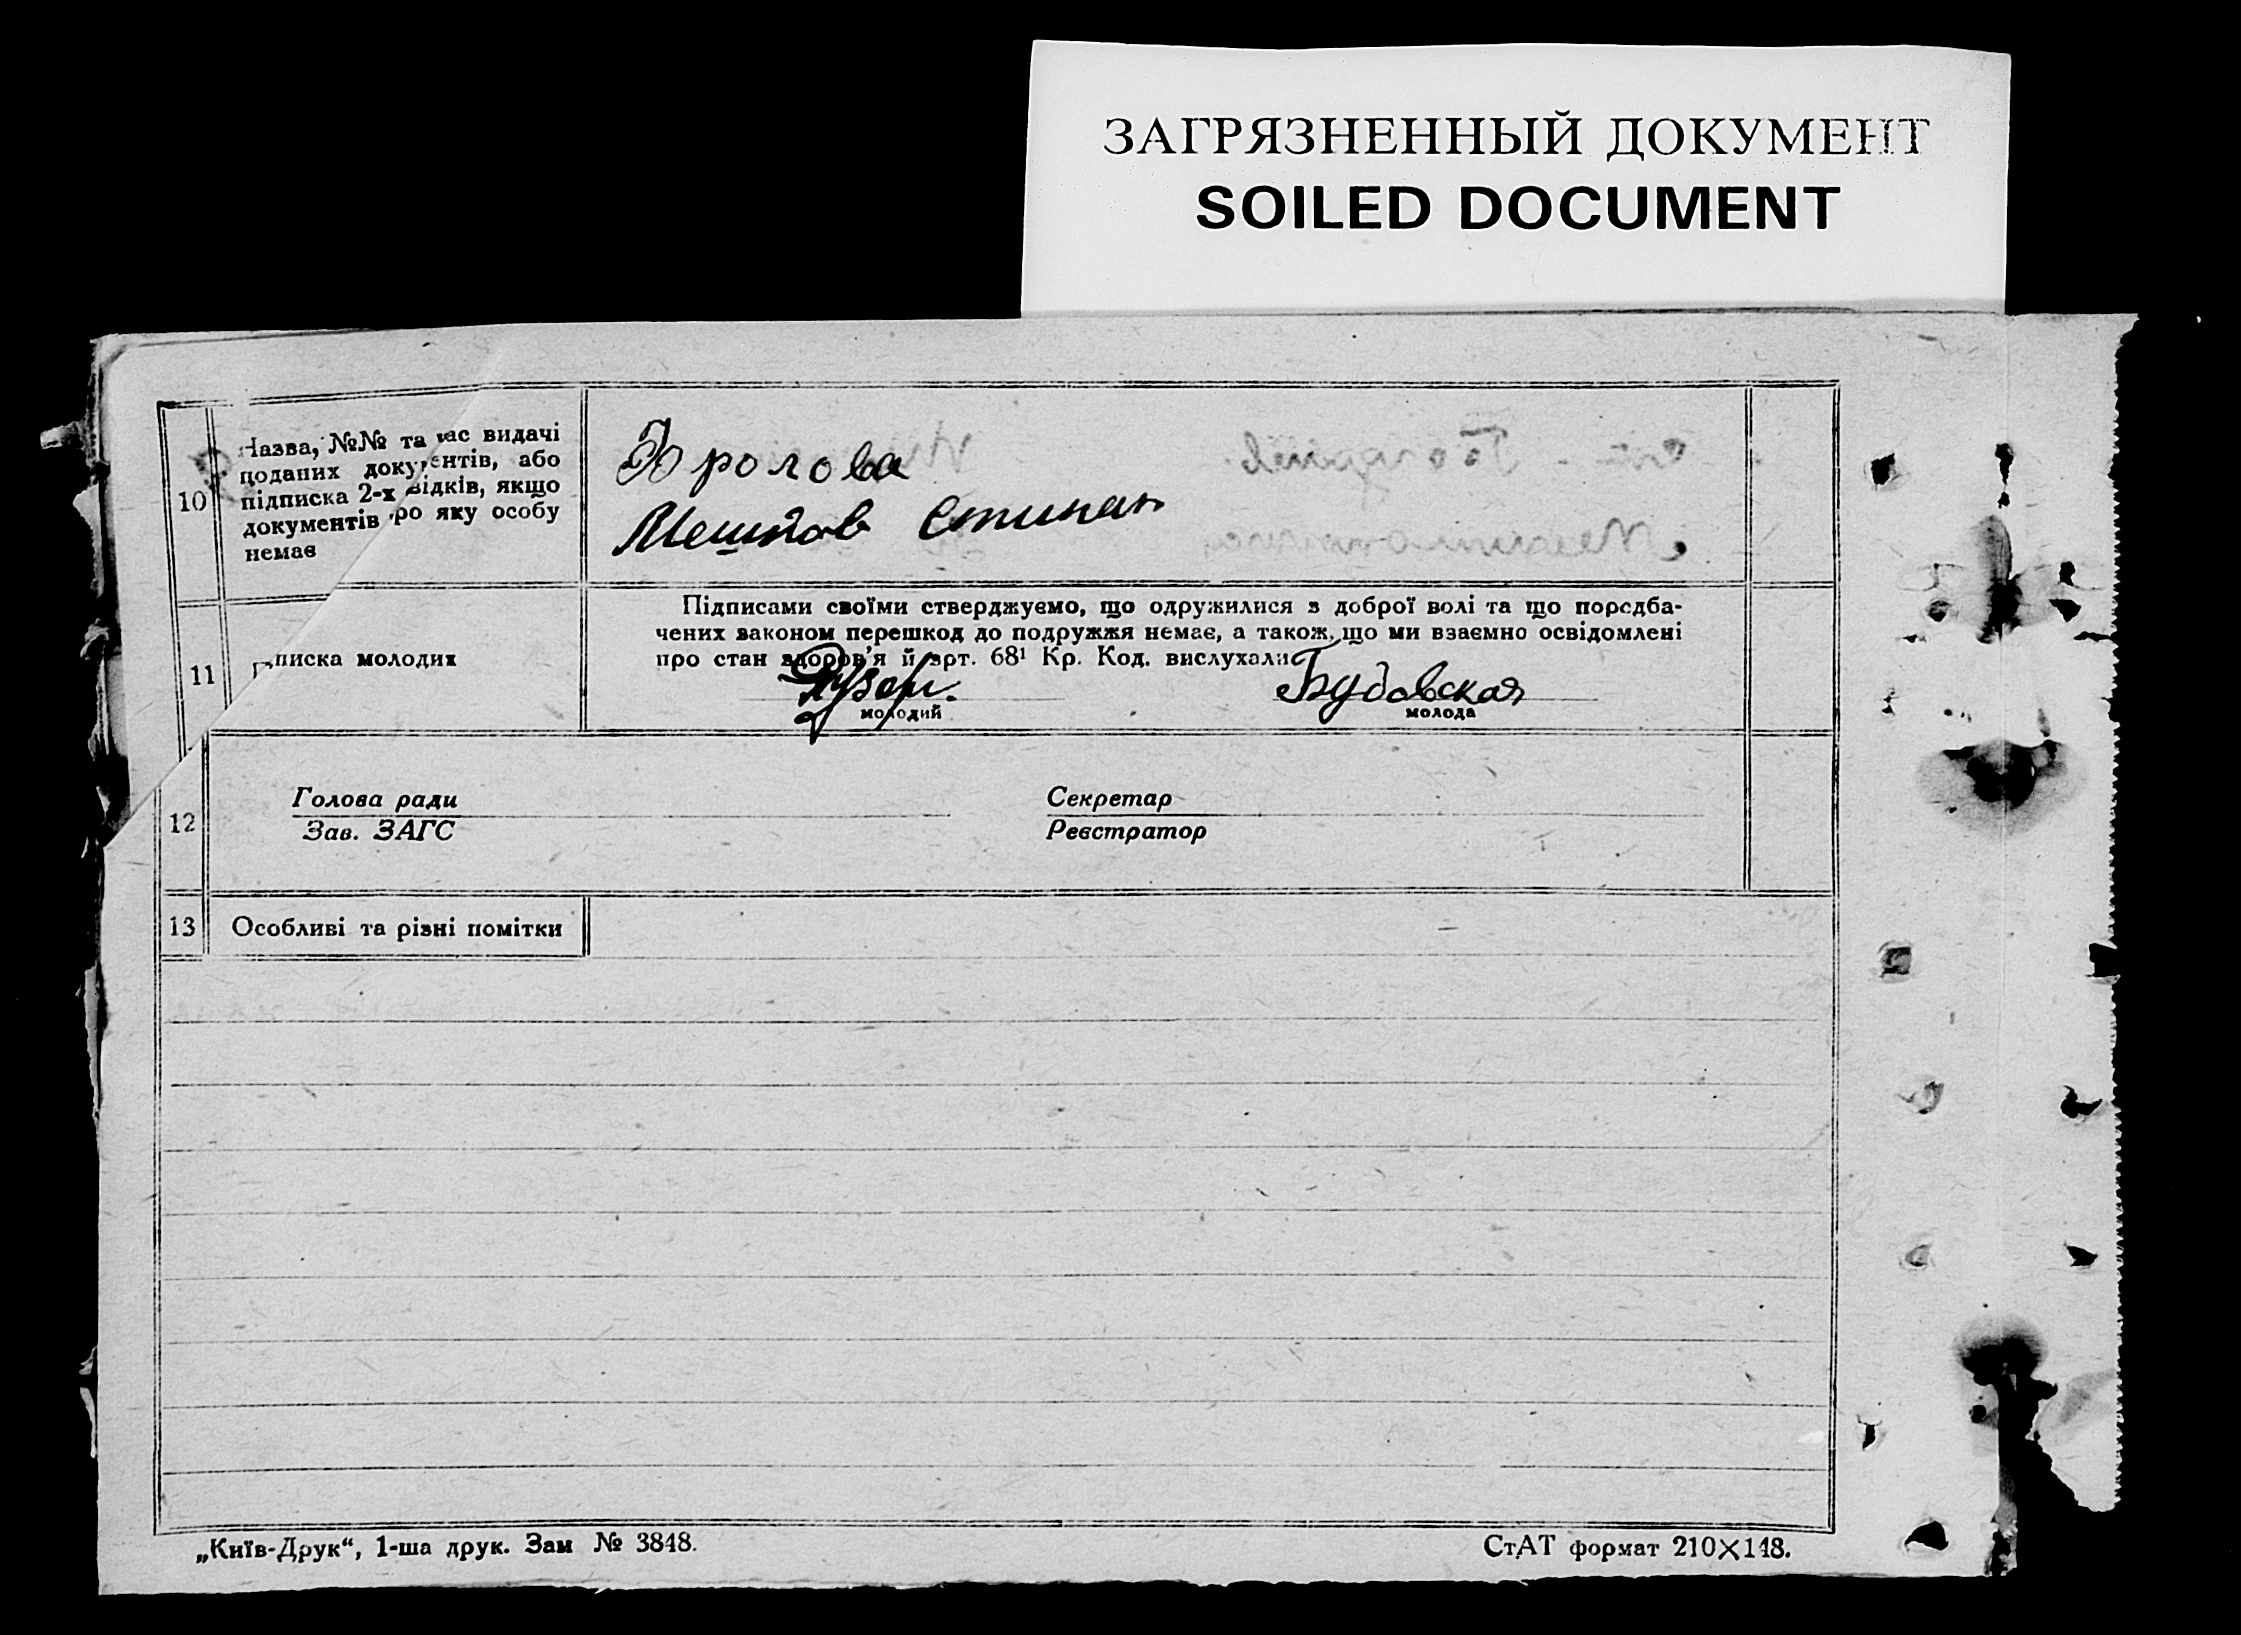 ЗАГРЯЗНЕННЫЙ ДОКУМЕНТ
SOILED DOCUMENT
10
Назва, №№ та час видачі
поданих документів, або
підписка 2-х відків, якщо
документів про яку особу
немає
Фролова
Мешков Степан
11
писка молодих
Підписами своїми стверджуємо, що одружилися з доброї волі та що передба-
чених законом перешкод до подружжя немає, а також, що ми взаємно освідомлені
про стан здоров'я й арт. 68¹ Кр. Код. вислухали
Будовская
молодий
молода
12
Голова ради
Зав. ЗАГС
Секретар
Реєстратор
13
Особливі та різні помітки
„Київ-Друк“, 1-ша друк. Зам № 3848.
СтАТ формат 210×148.